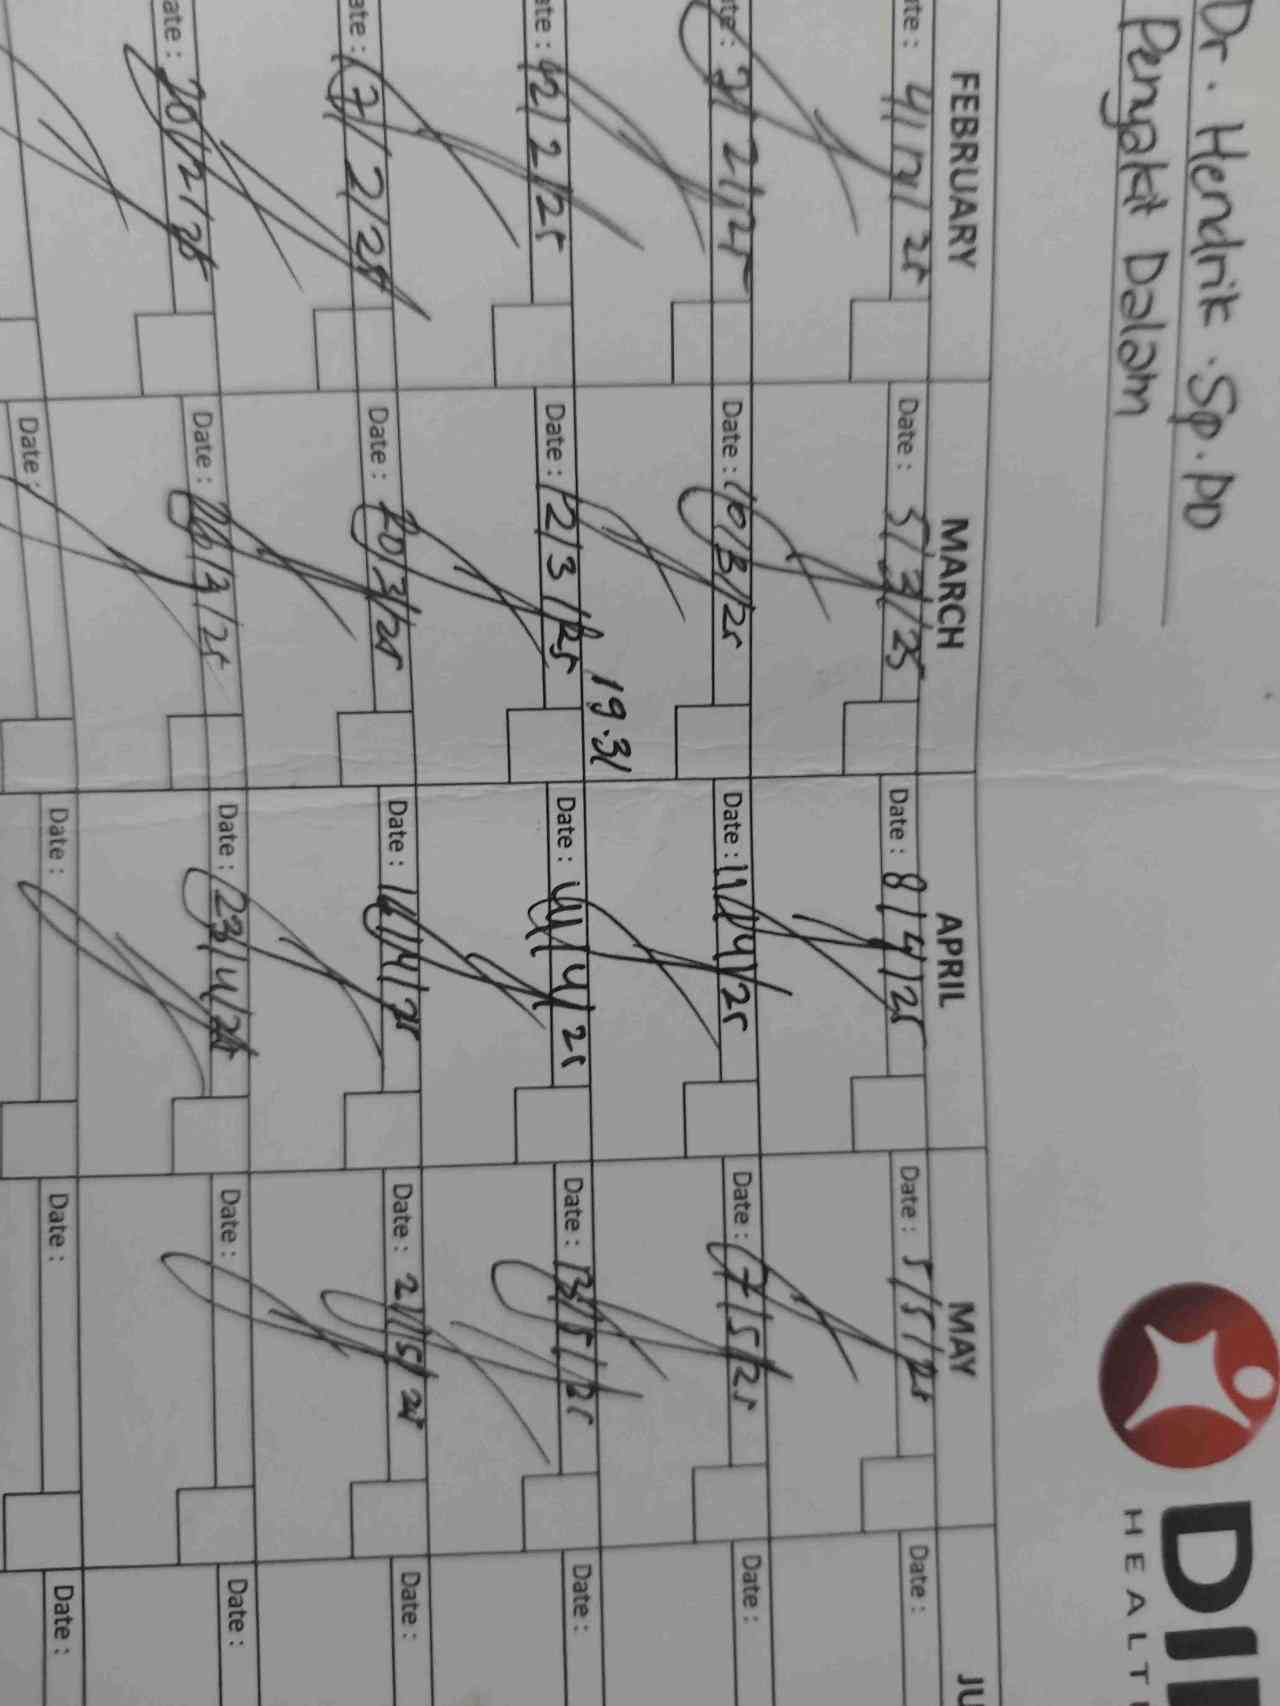 Dr. Hendrik . Sp. PD
Penyakit Dalam
DI
HEALT
FEBRUARY MARCH APRIL MAY JU
ate: 4/2/25 Date: 5/3/25 Date: 8/4/25 Date: 5/5/25 Date:
ate: 7/2/25 Date: 10/3/25 Date: 11/4/25 Date: 7/5/25 Date:
19.31
ate: 12/2/25 Date: 12/3/25 Date: 14/4/25 Date: 13/5/25 Date:
ate: 17/2/25 Date: 20/3/25 Date: 16/4/25 Date: 21/5/25 Date:
ate: 20/2/25 Date: 26/3/25 Date: 23/4/25 Date: Date:
Date: Date: Date: Date: